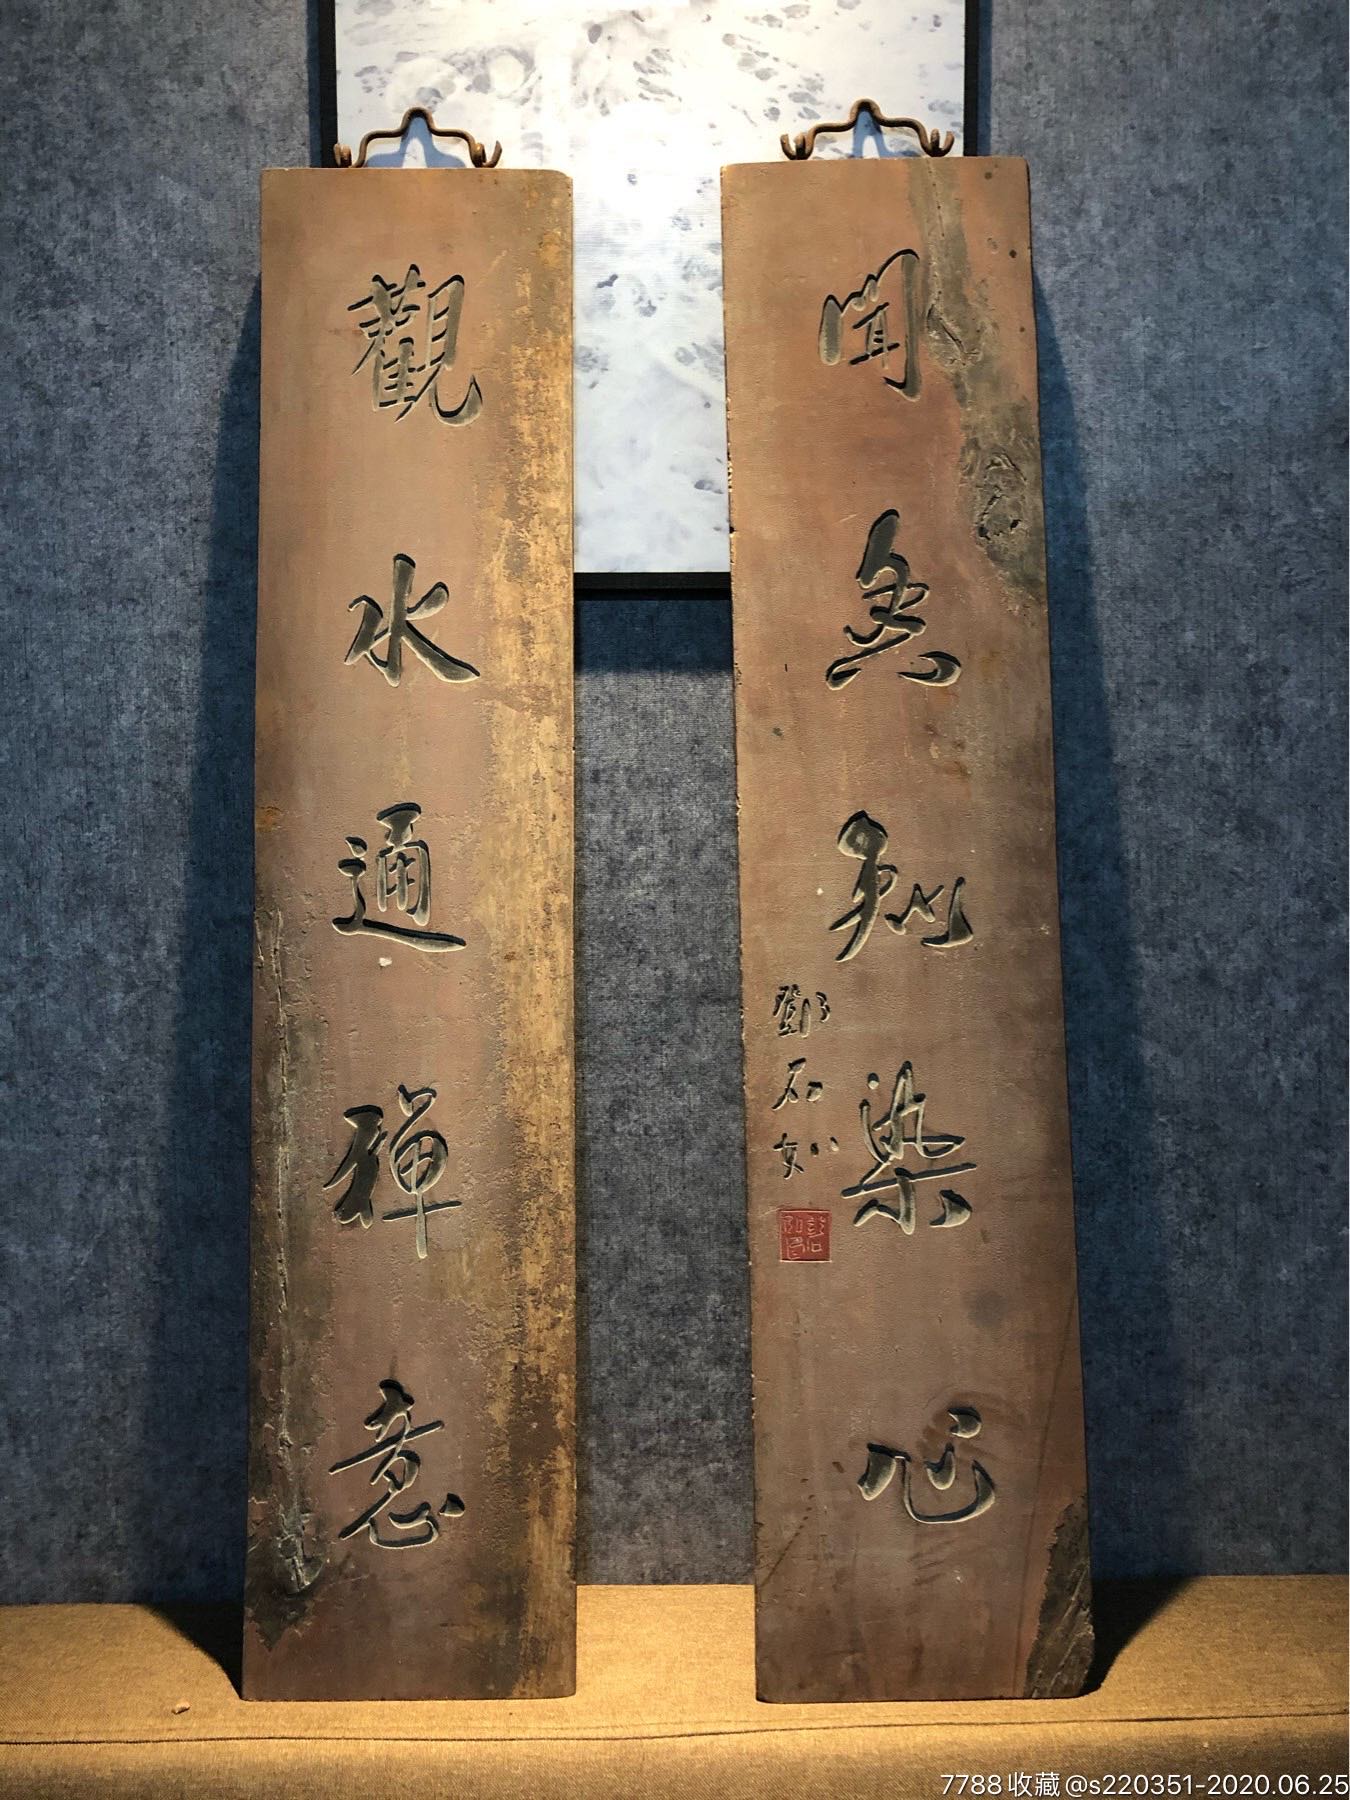 觀水通禪意
聞染心
鄧石如
7788收藏@s220351-2020.06.25